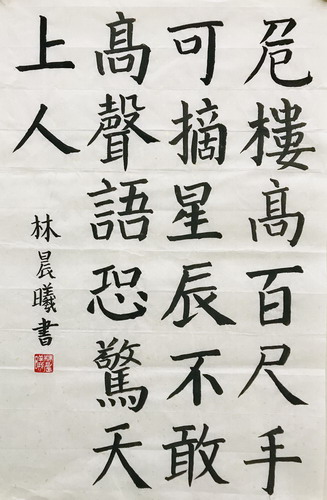 危樓高百尺手
可摘星辰不敢
高聲語恐驚天
上人
林晨曦書